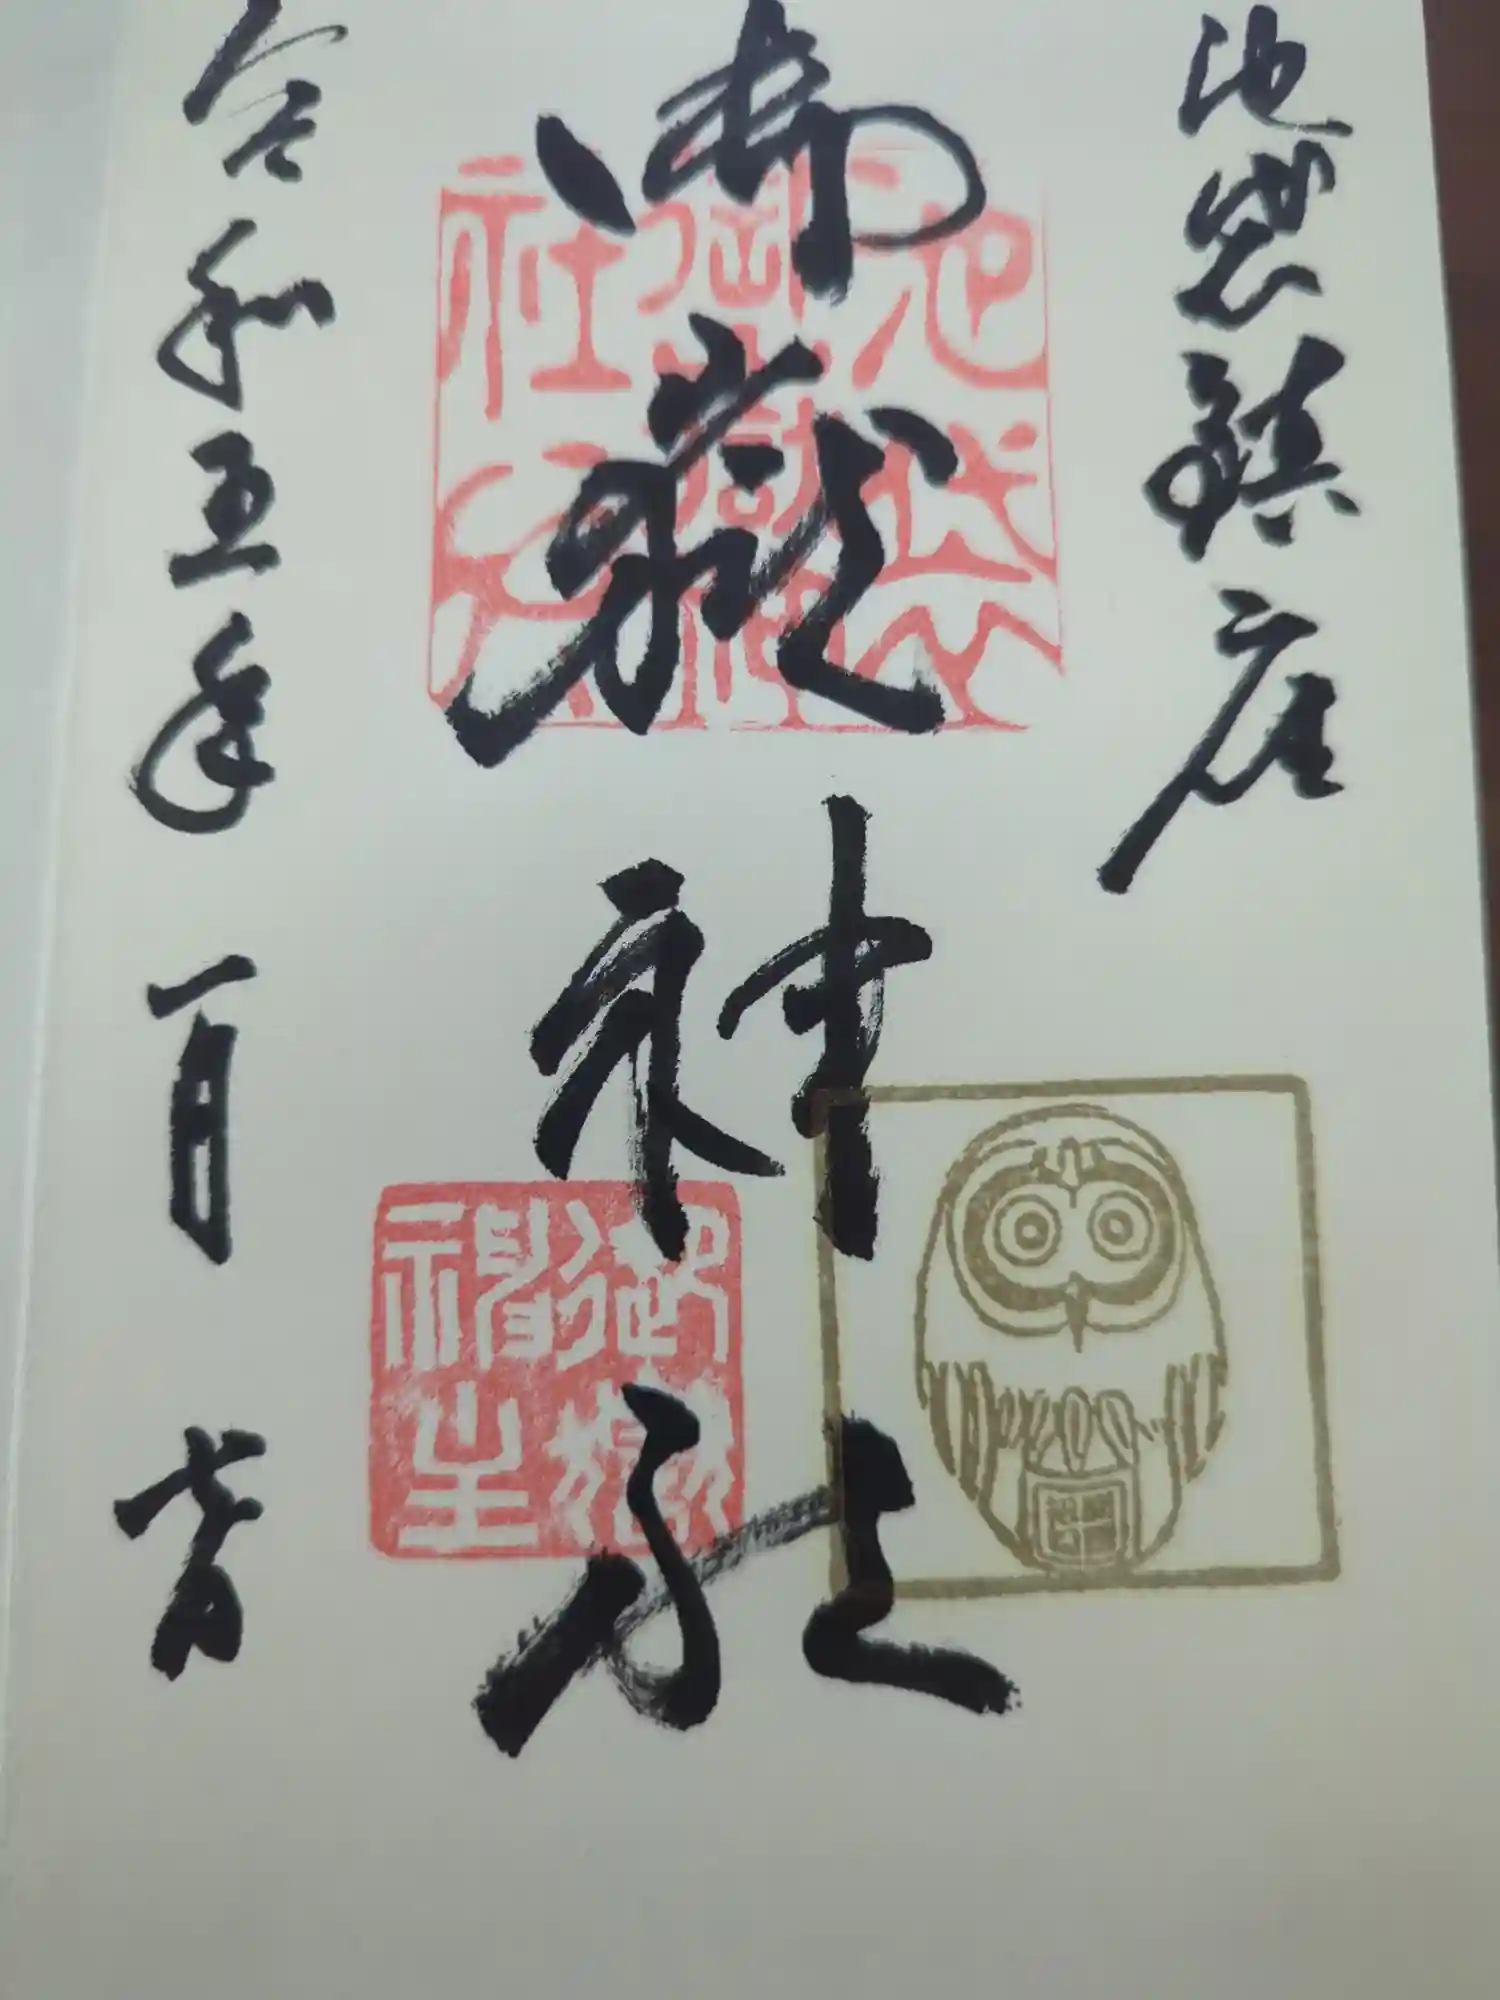 池袋鎮座
御嶽神社
令和五年一月七日
池袋
御嶽神
社之印